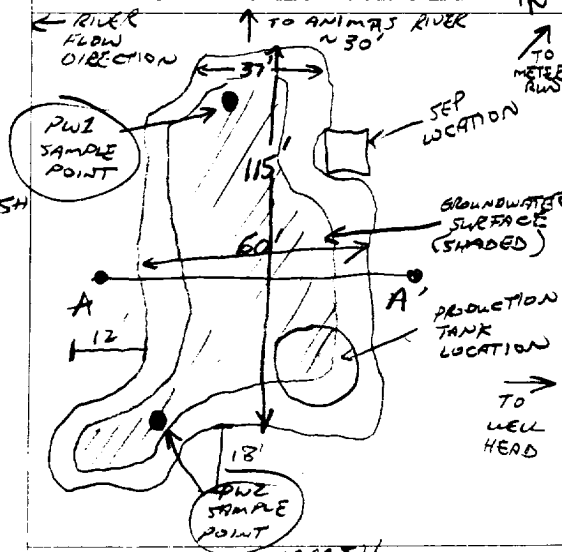 RIVER
FLOW
DIRECTION
TO ANIMAS RIVER
~ 30'
N
TO
METER
RUN
37'
SEP
LOCATION
PW1
SAMPLE
POINT
115'
GROUNDWATER
SURFACE
(SHADED)
60'
A
A'
PRODUCTION
TANK
LOCATION
12
TO
WELL
HEAD
18'
PW2
SAMPLE
POINT